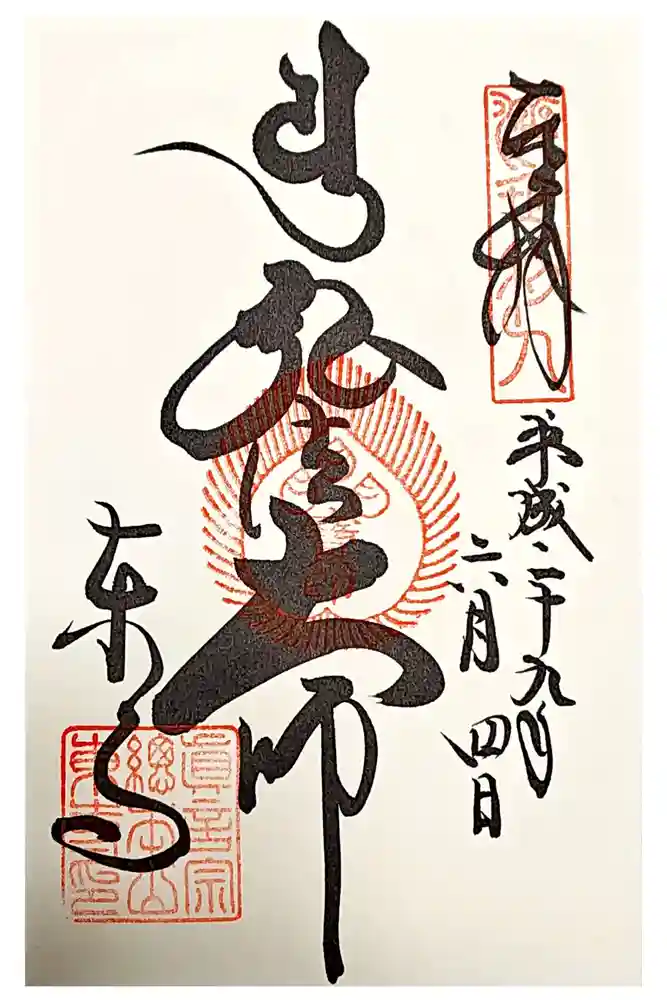 奉拝
平成二十九年
六月四日
弘法大師
東寺
眞言宗
總本山
東寺之印